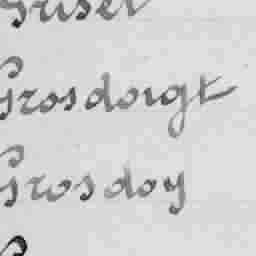 Griset
Grosdoigt
Grosdoy